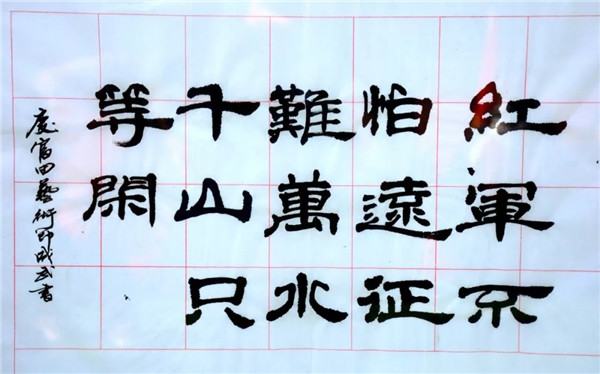 紅軍不
怕遠征
難萬水
千山只
等閑
富田藝術書